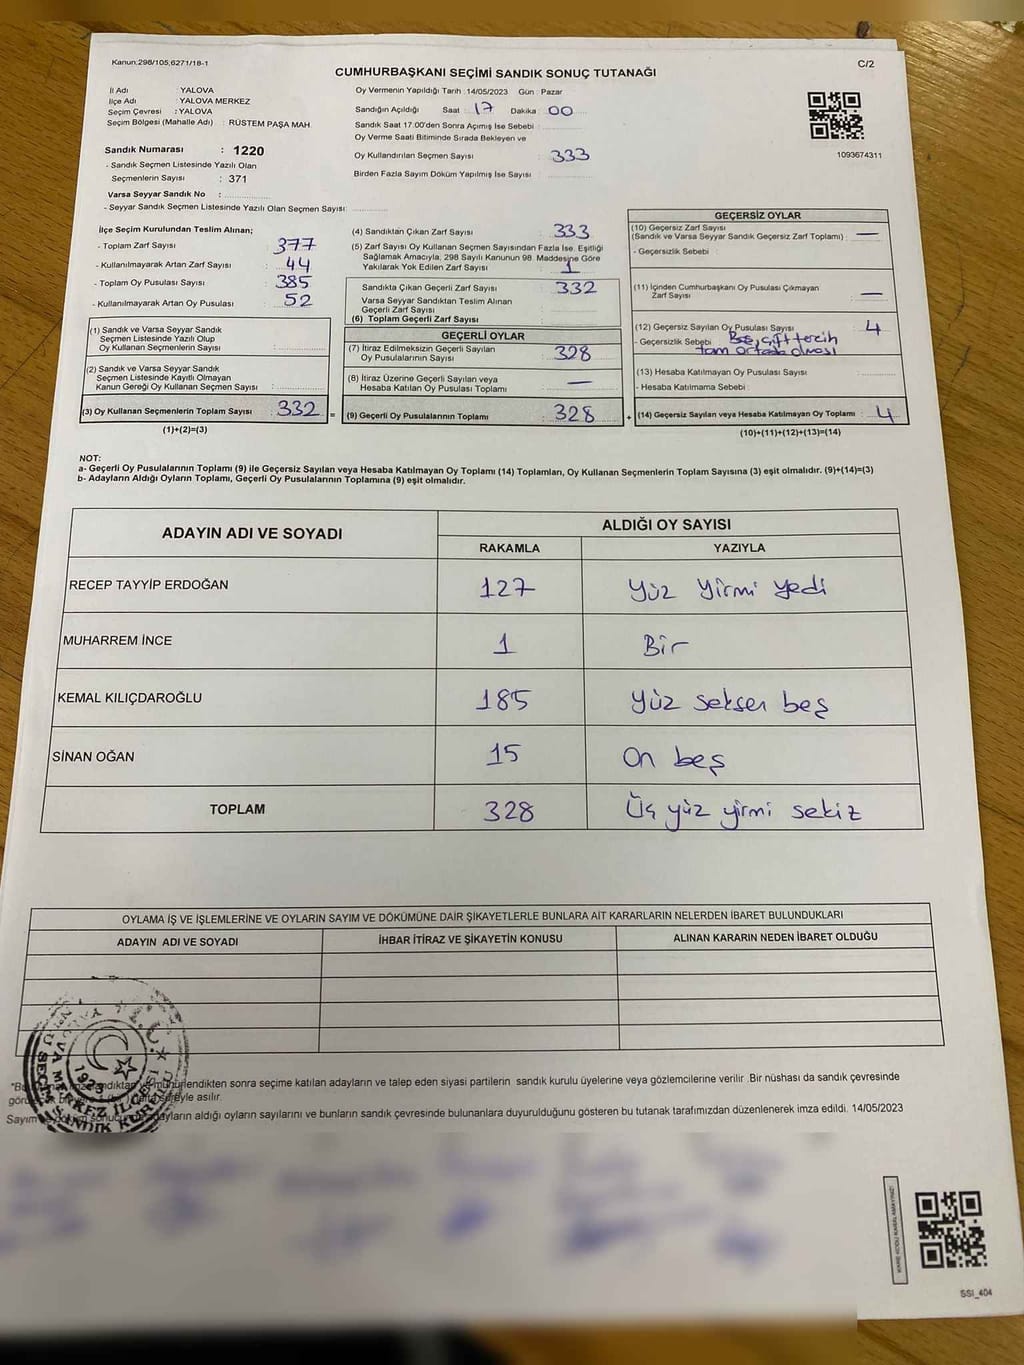 Kanun:298/105,6271/18-1
C/2
CUMHURBAŞKANI SEÇİMİ SANDIK SONUÇ TUTANAĞI
İl Adı : YALOVA
İlçe Adı : YALOVA MERKEZ
Seçim Çevresi : YALOVA
Seçim Bölgesi (Mahalle Adı) : RÜSTEM PAŞA MAH.
Sandık Numarası : 1220
- Sandık Seçmen Listesinde Yazılı Olan
Seçmenlerin Sayısı : 371
Varsa Seyyar Sandık No :
- Seyyar Sandık Seçmen Listesinde Yazılı Olan Seçmen Sayısı:
Oy Vermenin Yapıldığı Tarih : 14/05/2023 Gün : Pazar
Sandığın Açıldığı Saat : 17 Dakika : 00
Sandık Saat 17.00'den Sonra Açımış İse Sebebi :
Oy Verme Saati Bitiminde Sırada Bekleyen ve
Oy Kullandırılan Seçmen Sayısı : 333
Birden Fazla Sayım Döküm Yapılmış İse Sayısı :
1093674311
İlçe Seçim Kurulundan Teslim Alınan;
- Toplam Zarf Sayısı : 377
- Kullanılmayarak Artan Zarf Sayısı : 44
- Toplam Oy Pusulası Sayısı : 385
- Kullanılmayarak Artan Oy Pusulası : 52
(1) Sandık ve Varsa Seyyar Sandık
Seçmen Listesinde Yazılı Olup
Oy Kullanan Seçmenlerin Sayısı :
(2) Sandık ve Varsa Seyyar Sandık
Seçmen Listesinde Kayıtlı Olmayan
Kanun Gereği Oy Kullanan Seçmen Sayısı :
(3) Oy Kullanan Seçmenlerin Toplam Sayısı : 332 =
(1)+(2)=(3)
(4) Sandıktan Çıkan Zarf Sayısı : 333
(5) Zarf Sayısı Oy Kullanan Seçmen Sayısından Fazla İse, Eşitliği
Sağlamak Amacıyla, 298 Sayılı Kanunun 98. Maddesine Göre
Yakılarak Yok Edilen Zarf Sayısı : 1
Sandıkta Çıkan Geçerli Zarf Sayısı : 332
Varsa Seyyar Sandıktan Teslim Alınan
Geçerli Zarf Sayısı :
(6) Toplam Geçerli Zarf Sayısı :
GEÇERLİ OYLAR
(7) İtiraz Edilmeksizin Geçerli Sayılan
Oy Pusulalarının Sayısı : 328
(8) İtiraz Üzerine Geçerli Sayılan veya
Hesaba Katılan Oy Pusulası Toplamı : —
(9) Geçerli Oy Pusulalarının Toplamı : 328 +
GEÇERSİZ OYLAR
(10) Geçersiz Zarf Sayısı
(Sandık ve Varsa Seyyar Sandık Geçersiz Zarf Toplamı) : —
- Geçersizlik Sebebi :
(11) İçinden Cumhurbaşkanı Oy Pusulası Çıkmayan
Zarf Sayısı : —
(12) Geçersiz Sayılan Oy Pusulası Sayısı : 4
- Geçersizlik Sebebi çift tercih
tam ortada olması
(13) Hesaba Katılmayan Oy Pusula Sayısı :
- Hesaba Katılmama Sebebi :
(14) Geçersiz Sayılan veya Hesaba Katılmayan Oy Toplamı : 4
(10)+(11)+(12)+(13)=(14)
NOT:
a- Geçerli Oy Pusulalarının Toplamı (9) ile Geçersiz Sayılan veya Hesaba Katılmayan Oy Toplamı (14) Toplamları, Oy Kullanan Seçmenlerin Toplam Sayısına (3) eşit olmalıdır. (9)+(14)=(3)
b- Adayların Aldığı Oyların Toplamı, Geçerli Oy Pusulalarının Toplamına (9) eşit olmalıdır.
ADAYIN ADI VE SOYADI
ALDIĞI OY SAYISI
RAKAMLA YAZIYLA
RECEP TAYYİP ERDOĞAN 127 Yüz Yirmi yedi
MUHARREM İNCE 1 Bir
KEMAL KILIÇDAROĞLU 185 Yüz seksen beş
SİNAN OĞAN 15 On beş
TOPLAM 328 Üç yüz yirmi sekiz
OYLAMA İŞ VE İŞLEMLERİNE VE OYLARIN SAYIM VE DÖKÜMÜNE DAİR ŞİKAYETLERLE BUNLARA AİT KARARLARIN NELERDEN İBARET BULUNDUKLARI
ADAYIN ADI VE SOYADI İHBAR İTİRAZ VE ŞİKAYETİN KONUSU ALINAN KARARIN NEDEN İBARET OLDUĞU
T.C. YALOVA MERKEZ İLÇESİ
SANDIK KURULU
1923
mühürlendikten sonra seçime katılan adayların ve talep eden siyasi partilerin sandık kurulu üyelerine veya gözlemcilerine verilir .Bir nüshası da sandık çevresinde
asılır.
Sayım aldığı oyların sayılarını ve bunların sandık çevresinde bulunanlara duyurulduğunu gösteren bu tutanak tarafımızdan düzenlenerek imza edildi. 14/05/2023
KARE KODU KARALAMAYINIZ!
SSI_404